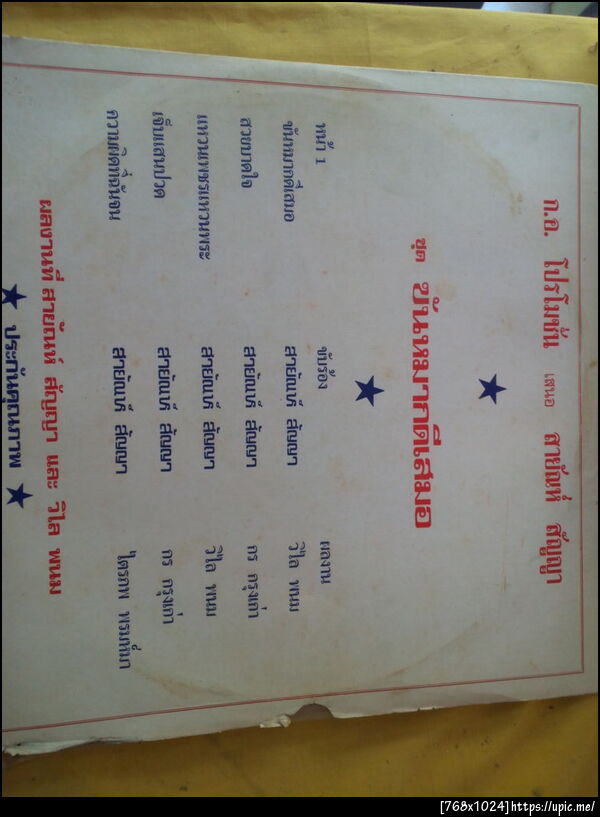 ก.อ. โปรโมชั่น เสนอ สายัณห์ สัญญา
ชุด ขันหมากดีเสมอ
หน้า 1 ขับร้อง ผลงาน
ขันหมากดีเสมอ สายัณห์ สัญญา วิไล พนม
สายบาดใจ สายัณห์ สัญญา กร กรุงเก่า
แหวนเพชรแหวนพระ สายัณห์ สัญญา วิไล พนม
เจ็บแสนปวด สายัณห์ สัญญา กร กรุงเก่า
ความผิดที่ฉันจน สายัณห์ สัญญา ไตรภพ พรมห์มา
ผลงานที่ สายัณห์ สัญญา และ วิไล พนม
ประกันคุณภาพ
[768x1024]https://upic.me/